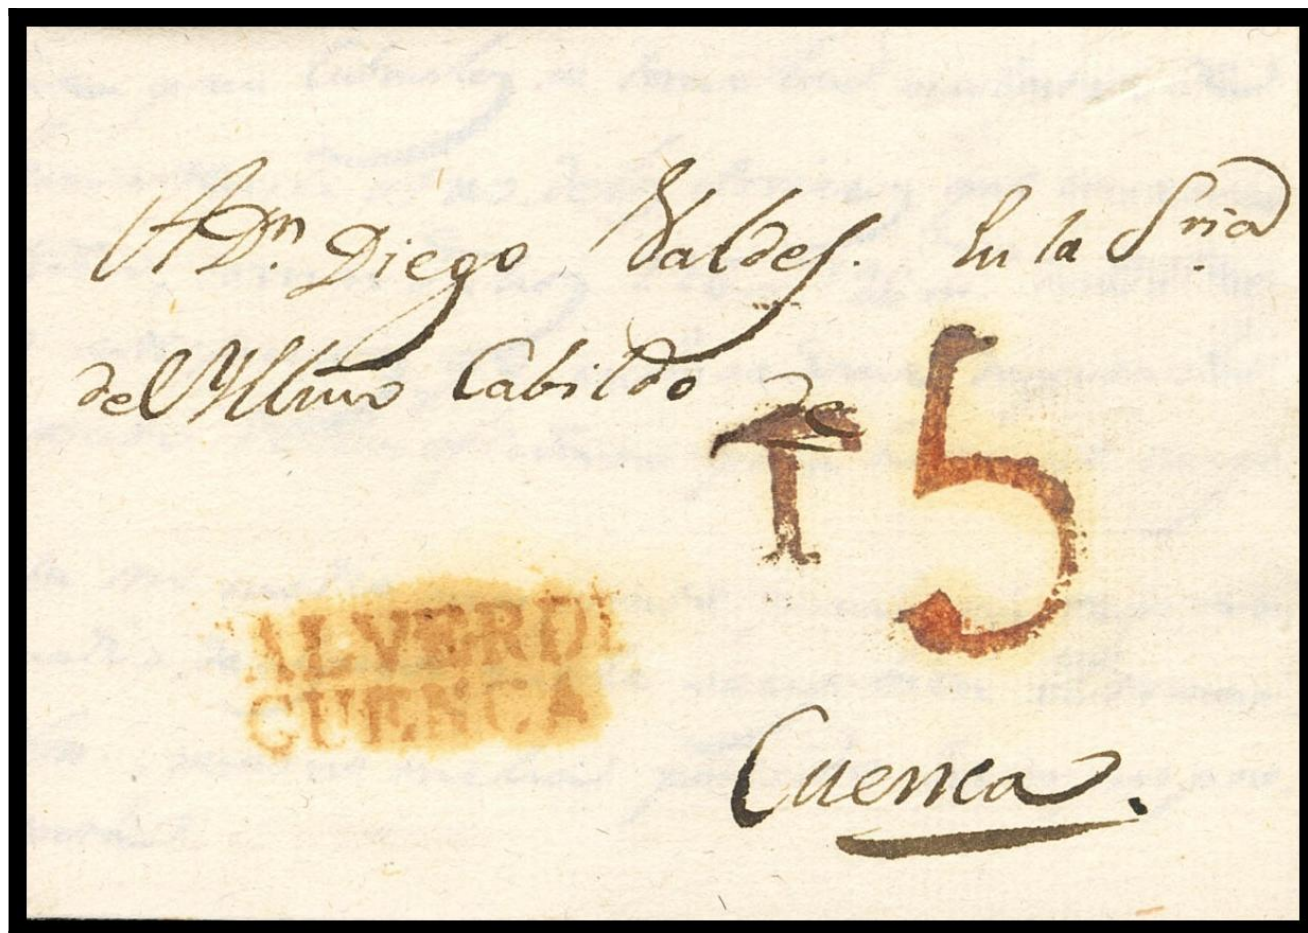 A Dn. Diego Valdes. En la Sria
del Yllmo Cabildo de
5
ALVERDE
CUENCA
Cuenca.